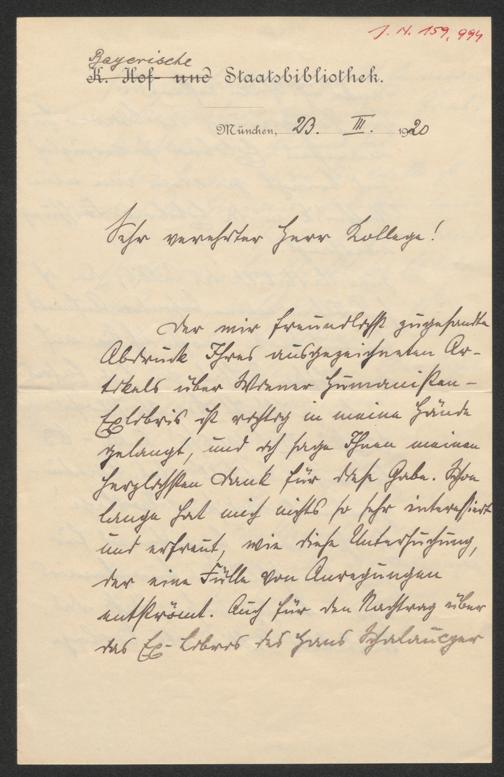 J. N. 159,994
Bayerische
K. Hof- und Staatsbibliothek.
München, 23. III. 1920
Sehr verehrter Herr Kollege!
Der mir freundlichst zugesandte
Abdruck Ihres ausgezeichneten Ar-
tikels über Wiener Humanisten-
Exlibris ist richtig in meine Hände
gelangt, und ich sage Ihnen meinen
herzlichsten Dank für diese Gabe. Schon
lange hat mich nichts so sehr interessiert
und erfreut, wie diese Untersuchung,
der eine Fülle von Anregungen
entströmt. Auch für den Nachtrag über
das Ex-libris des Hans